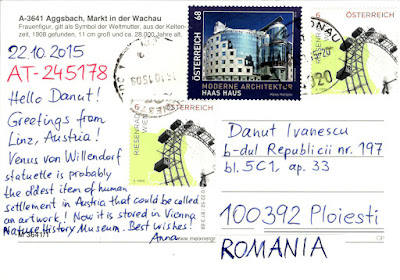 A-3641 Aggsbach, Markt in der Wachau
Frauenfigur, gilt als Symbol der Weltmutter, aus der Kelten-
zeit, 1908 gefunden, 11 cm groß und ca. 28.000 Jahre alt.
22.10.2015
AT-245178
Hello Danut!
Greetings from
Linz, Austria!
Venus von Willendorf
statuette is probably
the oldest item of human
settlement in Austria that could be called
an artwork! Now it is stored in Vienna
Nature History Museum. Best wishes!
Anna
M 3641/1
68
ÖSTERREICH
MODERNE ARCHITEKTUR
HAAS HAUS
Hans Hollein
6
ÖSTERREICH
RIESENRAD
WIEN
6
ÖSTERREICH
Danut Ivanescu
b-dul Republicii nr. 197
bl. 5C1, ap. 33
100392 Ploiesti
ROMANIA